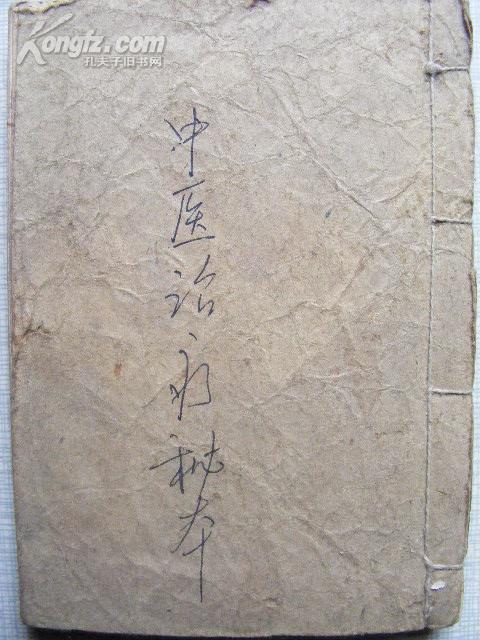 Kongfz.com
孔夫子旧书网
中医治疗秘本